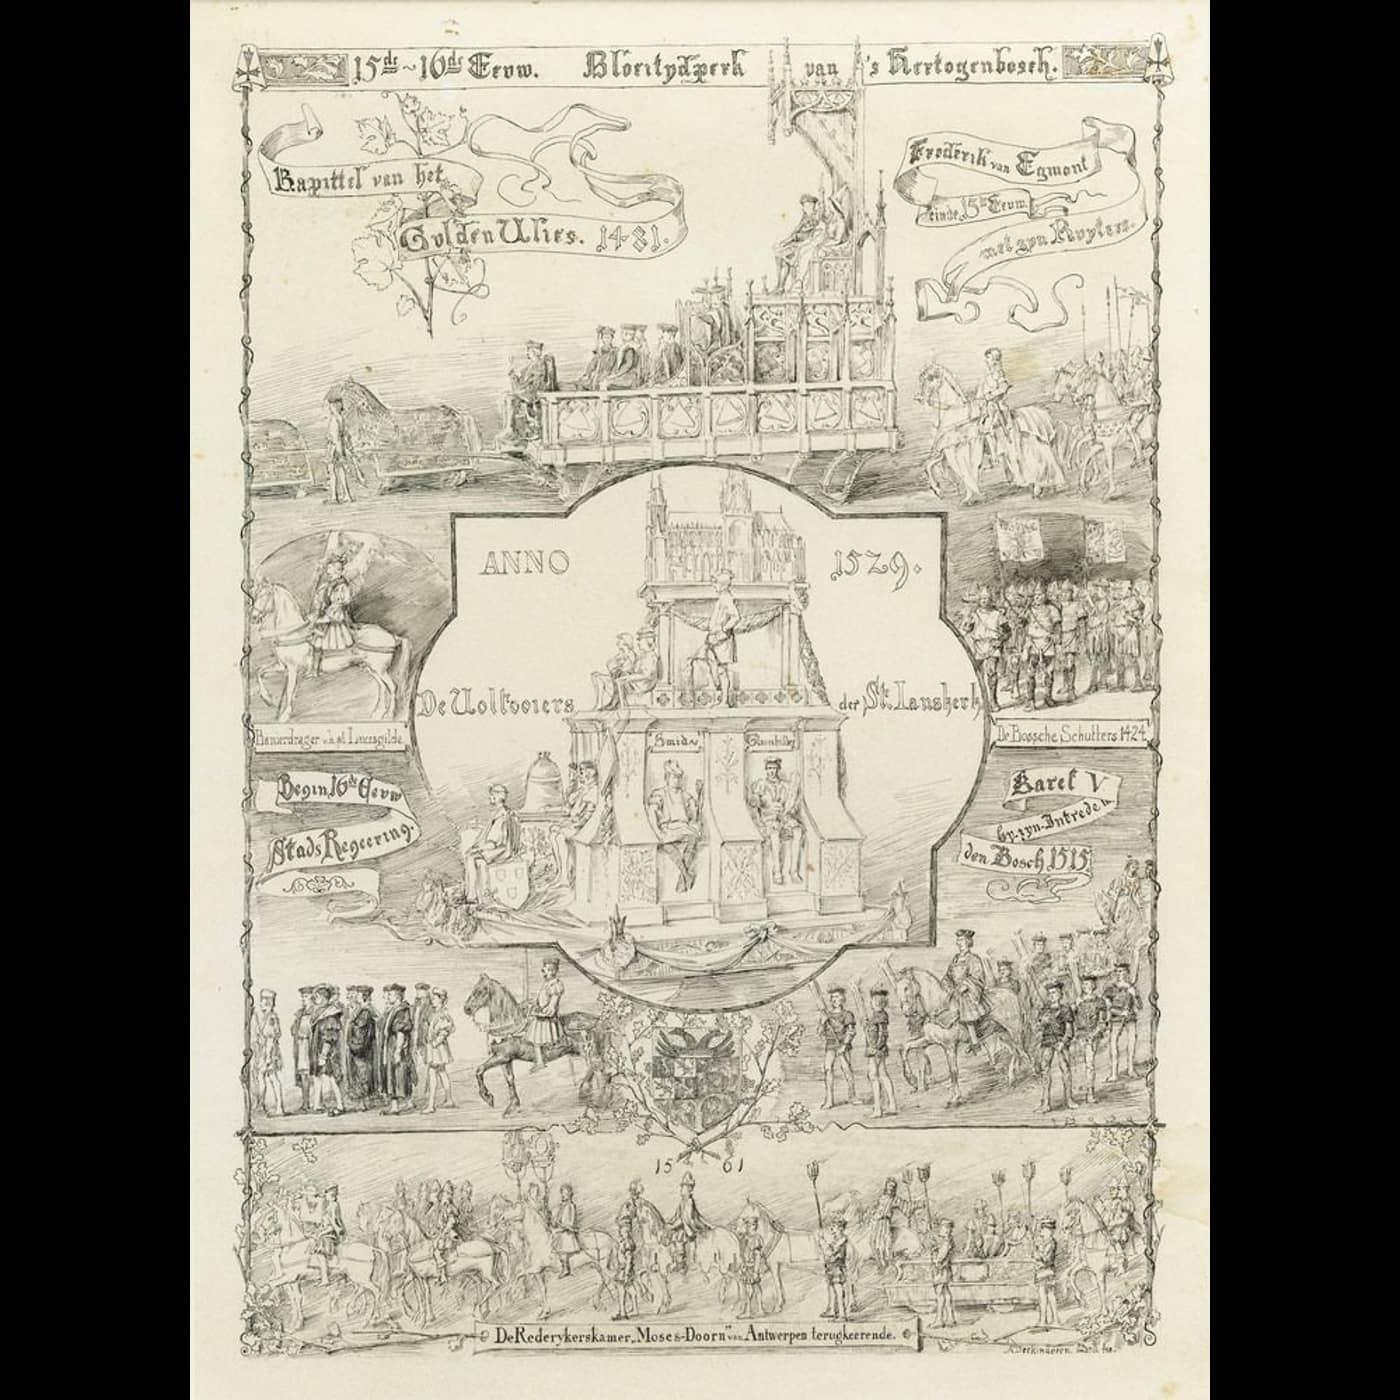 15de ~ 16de Eeuw. Bloeitydperk van 's Hertogenbosch.
Kapittel van het
Gulden Vlies. 1481.
Frederik van Egmont
einde 15de Eeuw.
met zyn Ruyters.
ANNO 1529.
De Voltooiers der St. Janskerk
Smids
Banierdrager v.h. st Lucasgilde
De Bossche Schutters 1424
Begin 16de Eeuw
Stads Regeering.
Karel V
by zyn Intrede in
den Bosch 1515
15 61
De Rederykerskamer "Moses-Doorn" van Antwerpen terugkeerende.